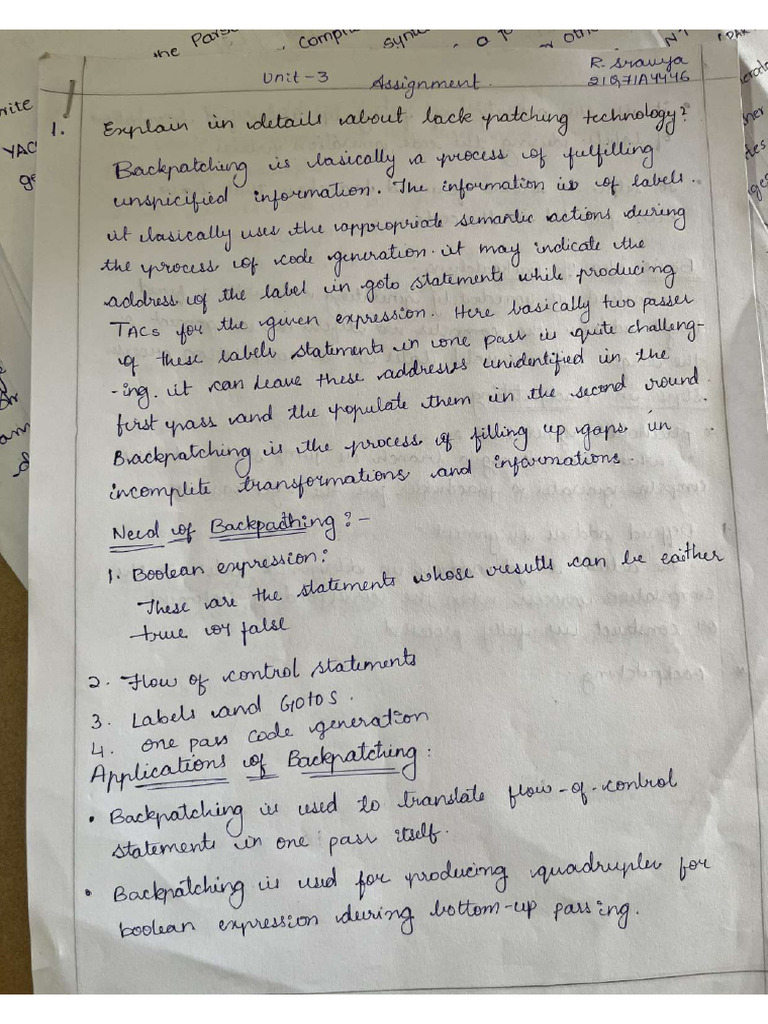 the Pars
Compi
synt
a p
or othe
N'T
DAR
rite
YAC
ge
Unit-3 Assignment.
R. Sravya
21Q71A4446
1. Explain in details about back patching technology?
Backpatching is basically a process of fulfilling
unspicified information. The information is of labels.
it basically uses the appropriate semantic actions during
the process of code generation. it may indicate the
address of the label in goto statements while producing
TACs for the given expression. Here basically two passes
of these labels statements in one pass is quite challeng-
-ing. it can leave these addresses unidentified in the
first pass and the populate them in the second round.
Backpatching is the process of filling up gaps in
incomplete transformations and informations.
Need of Backpadhing :-
1. Boolean expression:
These are the statements whose results can be eaither
true or false
2. Flow of control statements
3. Labels and Gotos.
4. one pass code generation
Applications of Backpatching:
• Backpatching is used to translate flow-of-control
statements in one pass itself.
• Backpatching is used for producing quadruples for
boolean expression during bottom-up passing.